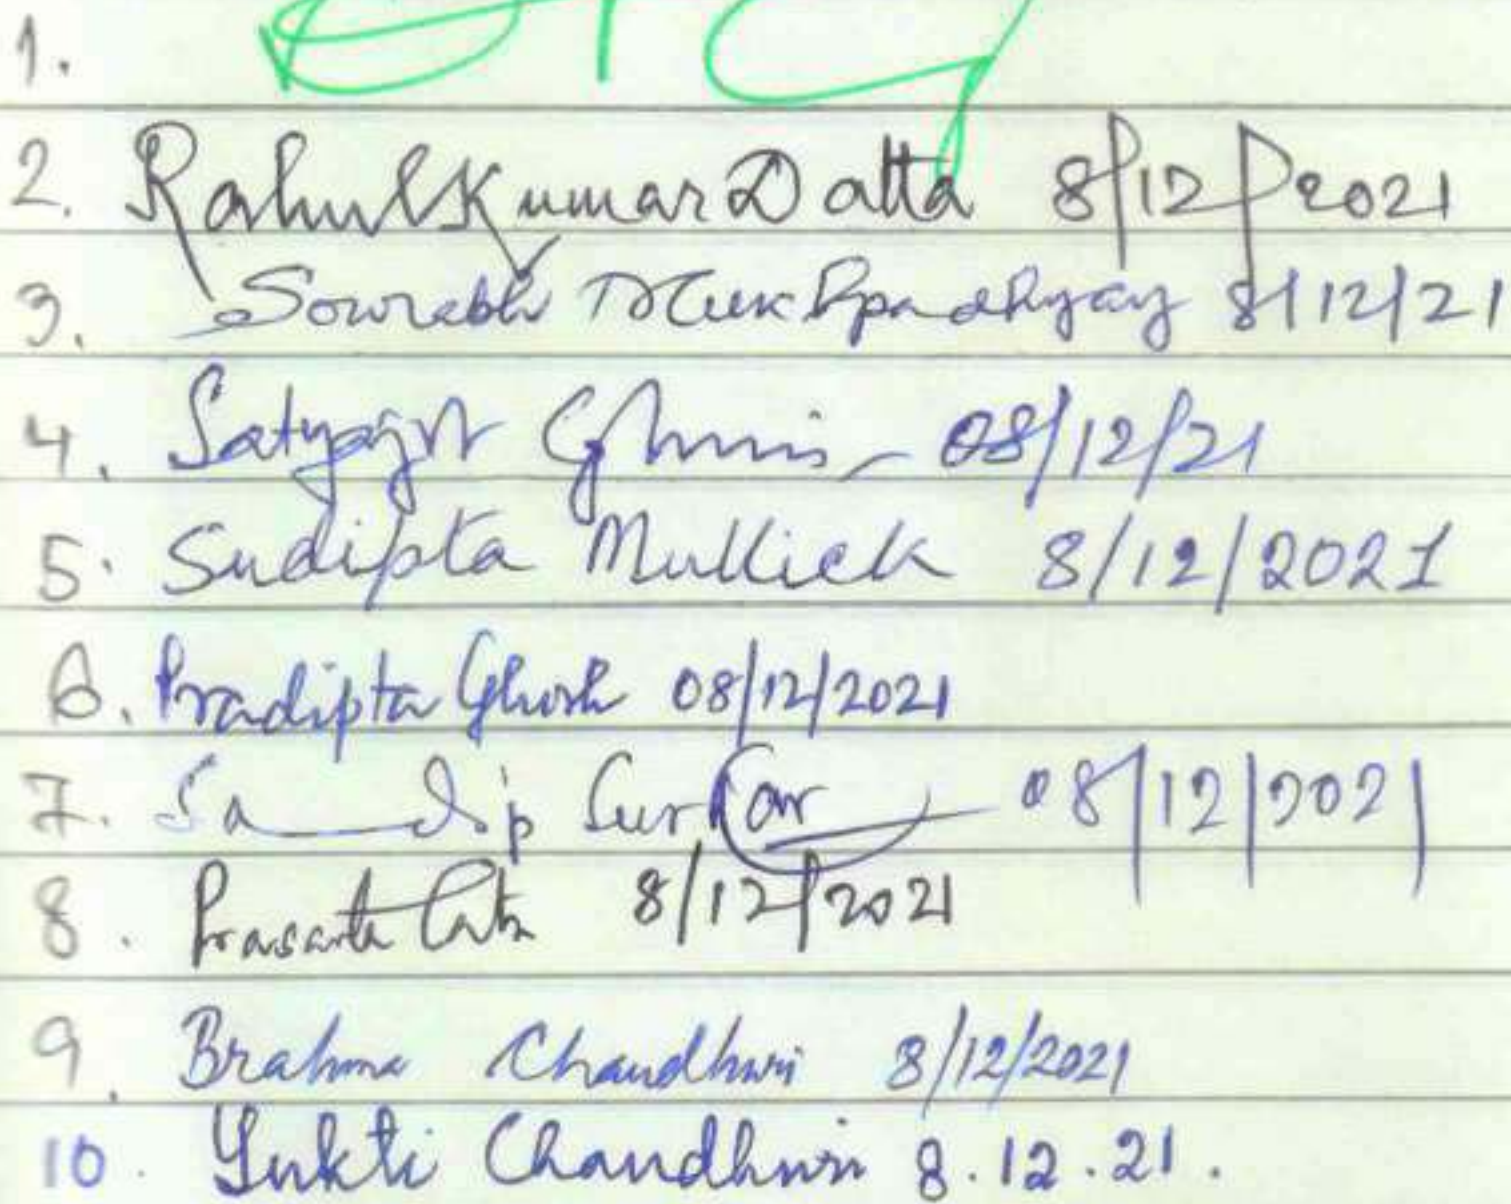 1.
2. Rahul Kumar Datta 8/12/2021
3. Sourabh Mukhopadhyay 8/12/21
4. Satyajit 08/12/21
5. Sudipta Mullick 8/12/2021
6. Pradipta Ghosh 08/12/2021
7. Sandip Sarkar 08/12/2021
8. Prasanta 8/12/2021
9. Brahma Chaudhuri 8/12/2021
10. Yukti Chaudhuri 8.12.21.